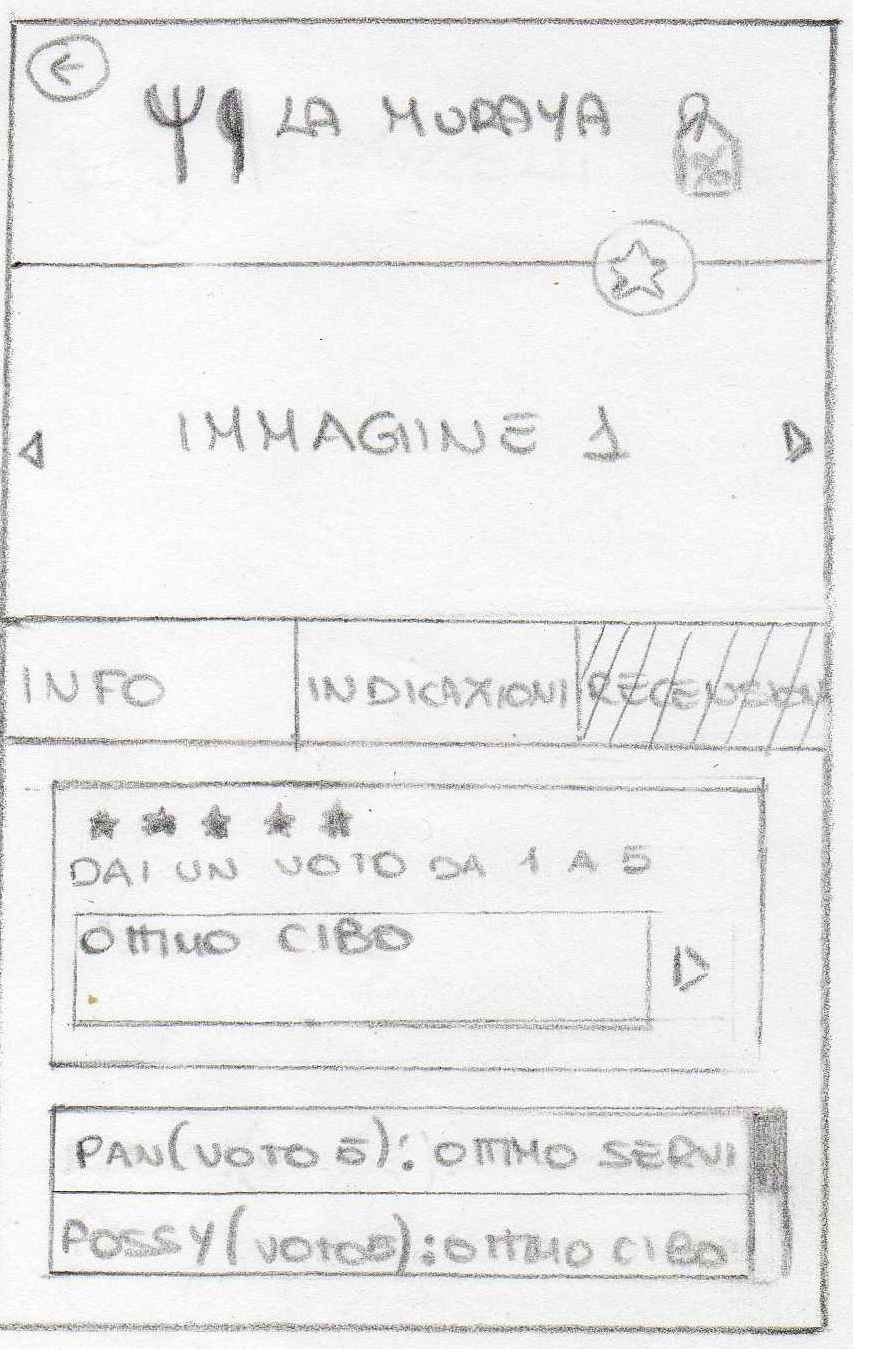 LA MURAYA
%
IMMAGINE 1
INFO
INDICAZIONI
RECENSION
DAI UN VOTO DA 1 A 5
OTTIMO CIBO
PAN(VOTO 5): OTTIMO SERVI
POSSY(VOTO5): OTTIMO CIBO